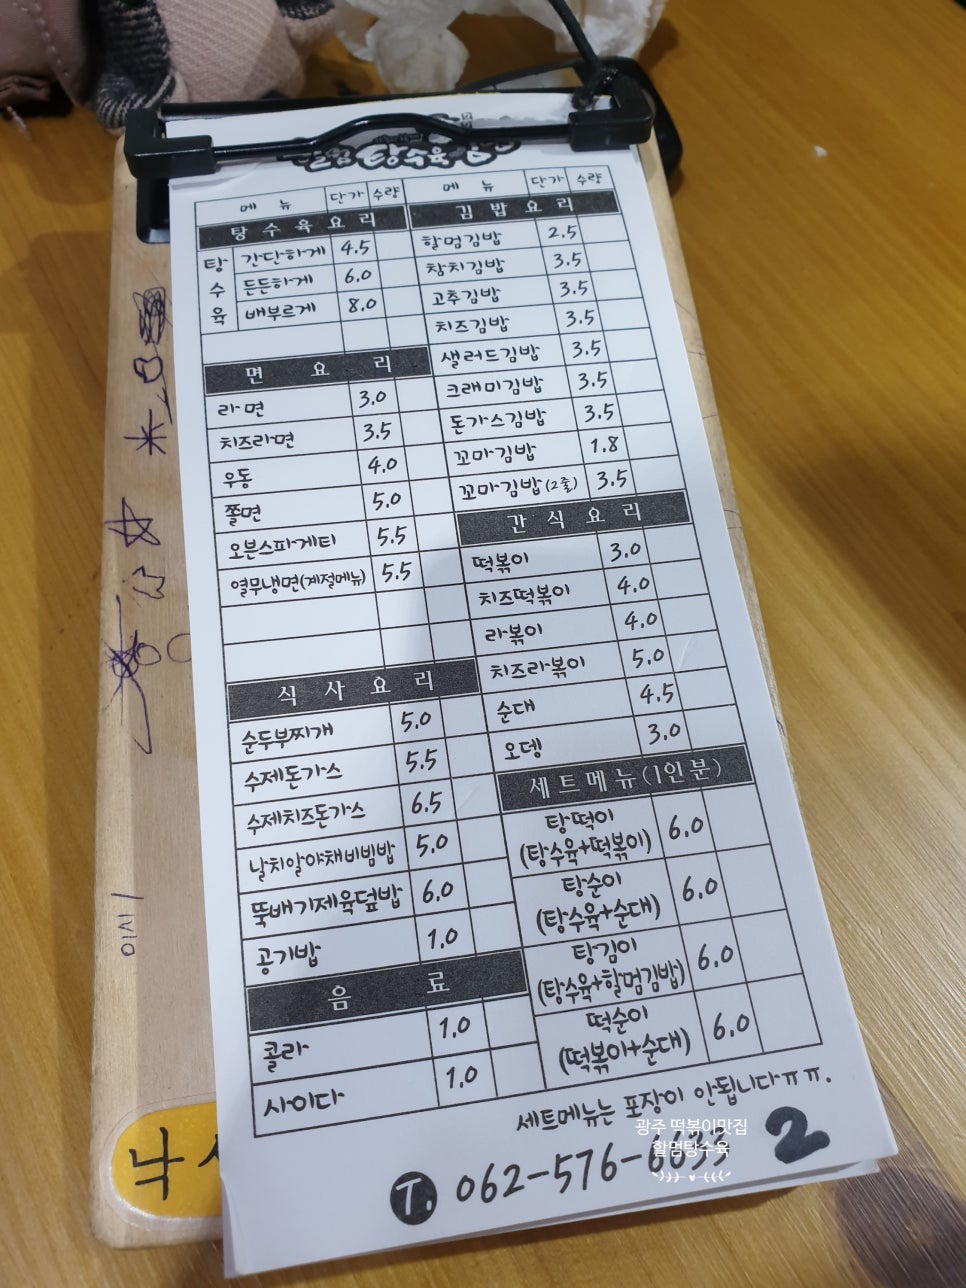 탕수육
메 뉴 단가 수량
탕 수 육 요 리
탕수육
간단하게 4.5
든든하게 6.0
배부르게 8.0
면 요 리
라면 3.0
치즈라면 3.5
우동 4.0
쫄면 5.0
오븐스파게티 5.5
열무냉면(계절메뉴) 5.5
식 사 요 리
순두부찌개 5.0
수제돈가스 5.5
수제치즈돈가스 6.5
날치알야채비빔밥 5.0
뚝배기제육덮밥 6.0
공기밥 1.0
음 료
콜라 1.0
사이다 1.0
메 뉴 단가 수량
김 밥 요 리
할멈김밥 2.5
참치김밥 3.5
고추김밥 3.5
치즈김밥 3.5
샐러드김밥 3.5
크래미김밥 3.5
돈가스김밥 3.5
꼬마김밥 1.8
꼬마김밥(2줄) 3.5
간 식 요 리
떡볶이 3.0
치즈떡볶이 4.0
라볶이 4.0
치즈라볶이 5.0
순대 4.5
오뎅 3.0
세트메뉴(1인분)
탕떡이 6.0
(탕수육+떡볶이)
탕순이 6.0
(탕수육+순대)
탕김이 6.0
(탕수육+할멈김밥)
떡순이 6.0
(떡볶이+순대)
세트메뉴는 포장이 안됩니다ㅠㅠ.
광주 떡볶이맛집
할멈탕수육
2
T. 062-576-6633
낙